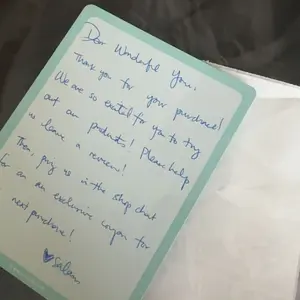 Dear Wonderful You,
Thank you for your purchase!
We are so excited for you to try
out our products! Please help
us leave a review!
Then, ping us in the shop chat
for an an exclusive coupon for
next purchase!